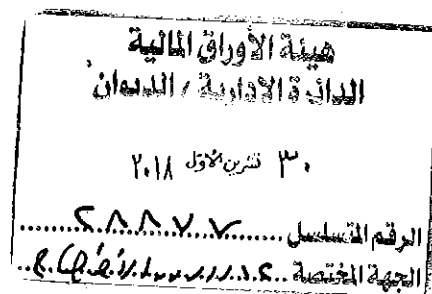 هيئة الأوراق المالية
الدائرة الادارية / الديوان
٣٠ تشرين الاول ٢٠١٨
الرقم المتسلسل
الجهة المختصة